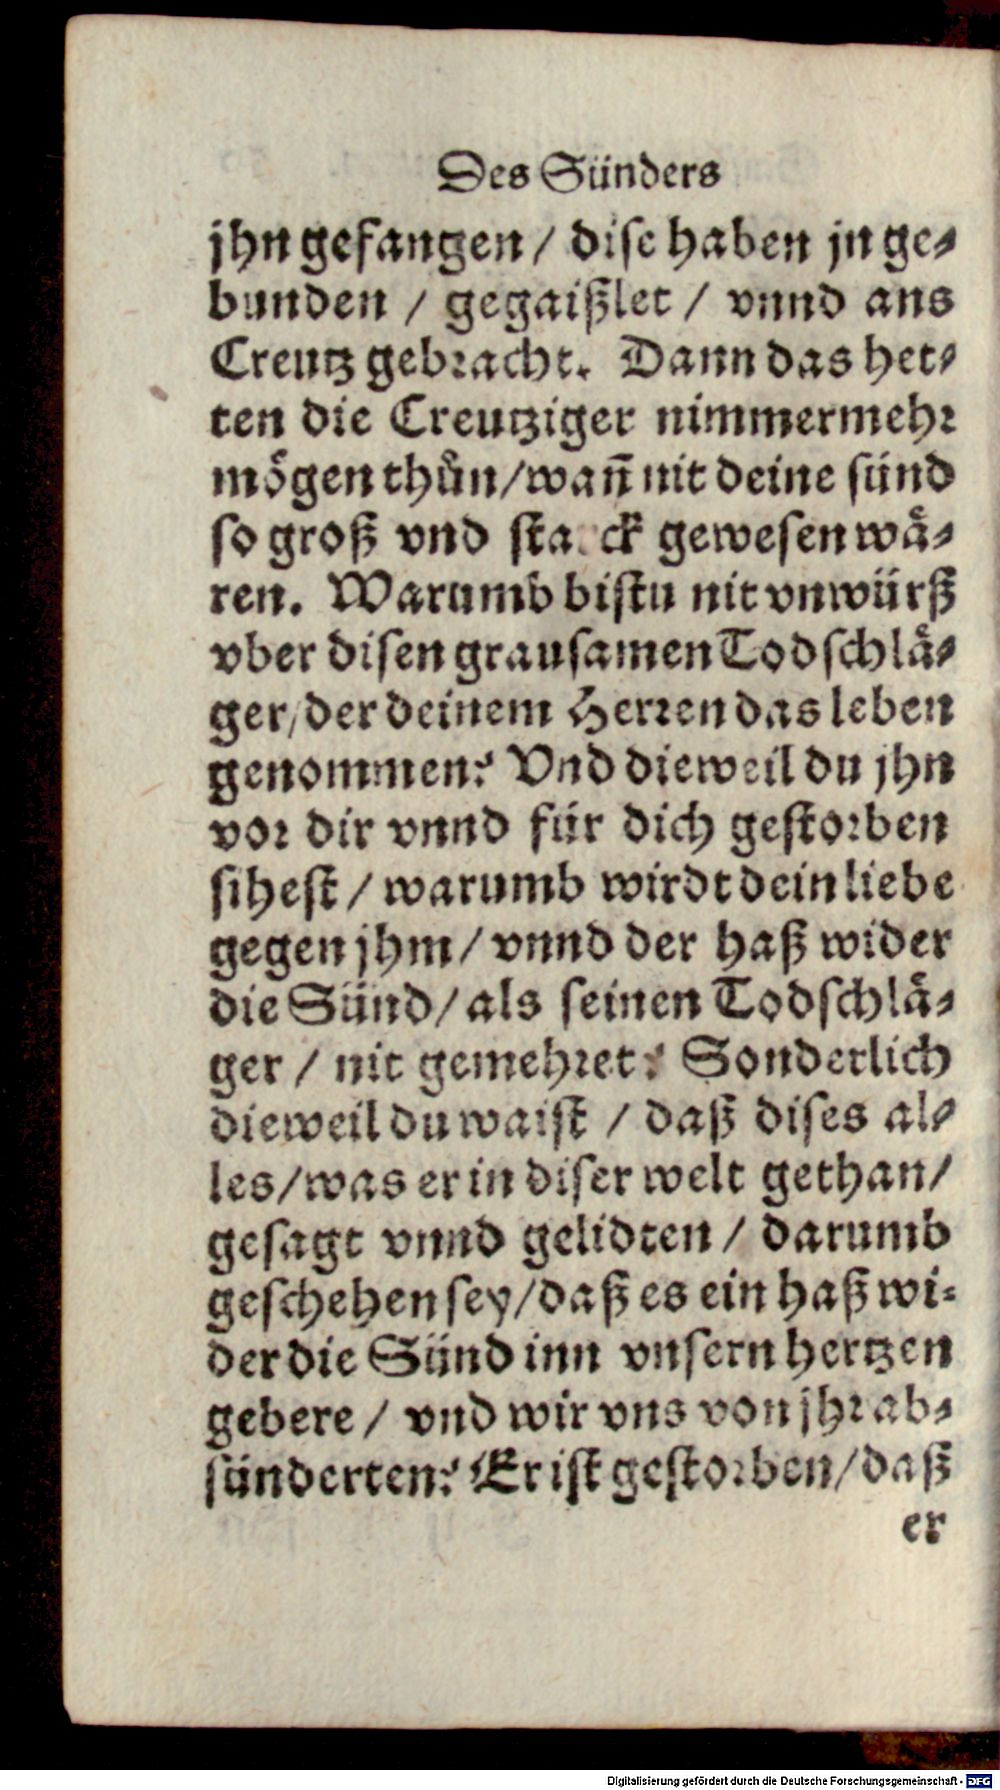 Des Sünders
jhn gefangen / dise haben jn ge-
bunden / gegaißlet / vnnd ans
Creutz gebracht. Dann das het-
ten die Creutziger nimmermehr
mögen thůn / wañ nit deine sünd
so groß vnd sta ck gewesen wä-
ren. Warumb bistu nit vnwürß
vber disen grausamen Todschlä-
ger / der deinem Herren das leben
genommen? Vnd dieweil du jhn
vor dir vnnd für dich gestorben
sihest / warumb wirdt dein liebe
gegen jhm / vnnd der haß wider
die Sünd / als seinen Todschlä-
ger / nit gemehret? Sonderlich
dieweil du waist / daß dises al-
les / was er in diser welt gethan /
gesagt vnnd gelidten / darumb
geschehen sey / daß es ein haß wi-
der die Sünd inn vnsern hertzen
gebere / vnd wir vns von jhr ab-
sünderten? Er ist gestorben / daß
er
Digitalisierung gefördert durch die Deutsche Forschungsgemeinschaft - DFG